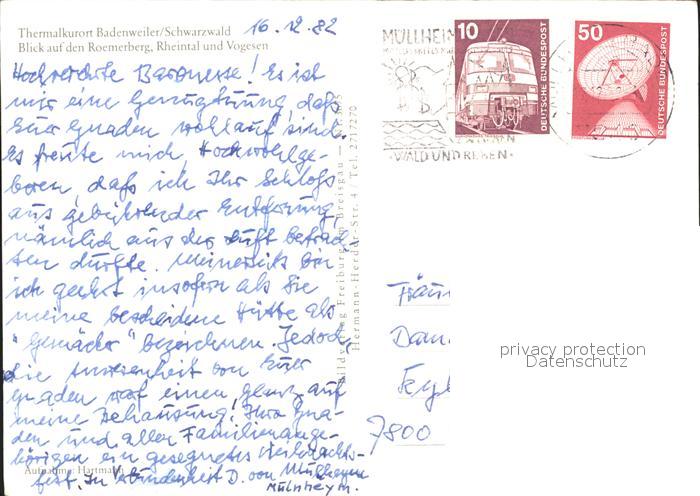 Thermalkurort Badenweiler/Schwarzwald
Blick auf den Roemerberg, Rheintal und Vogesen
16.12.82
Hochverehrte Baronesse! Es ist
mir eine Genugtuung, daß
Euer Gnaden wohlauf sind.
Es freute mich, Hochwohlge-
boren, daß ich Ihr Schloß
aus gebührender Entfernung,
nämlich aus der Luft betrach-
ten durfte. Meinerseits bin
ich geehrt insofern als Sie
meine bescheidene Hütte als
"Gemächer" bezeichnen. Jedoch,
die Anwesenheit von Euer
Gnaden warf einen Glanz auf
meine Behausung! Ihro Gna-
den und allen Familienange-
hörigen ein gesegnetes Weihnachts-
fest. In Verbundenheit D. von Müllheym
Mülnheym.
Aufnahme: Hartmann
Bildverlag Freiburg im Breisgau
Hermann-Herder-Str. 4 / Tel. 2717270
MÜLLHEIM
WALD UND REBEN
10
DEUTSCHE BUNDESPOST
50
DEUTSCHE BUNDESPOST
7800
privacy protection
Datenschutz